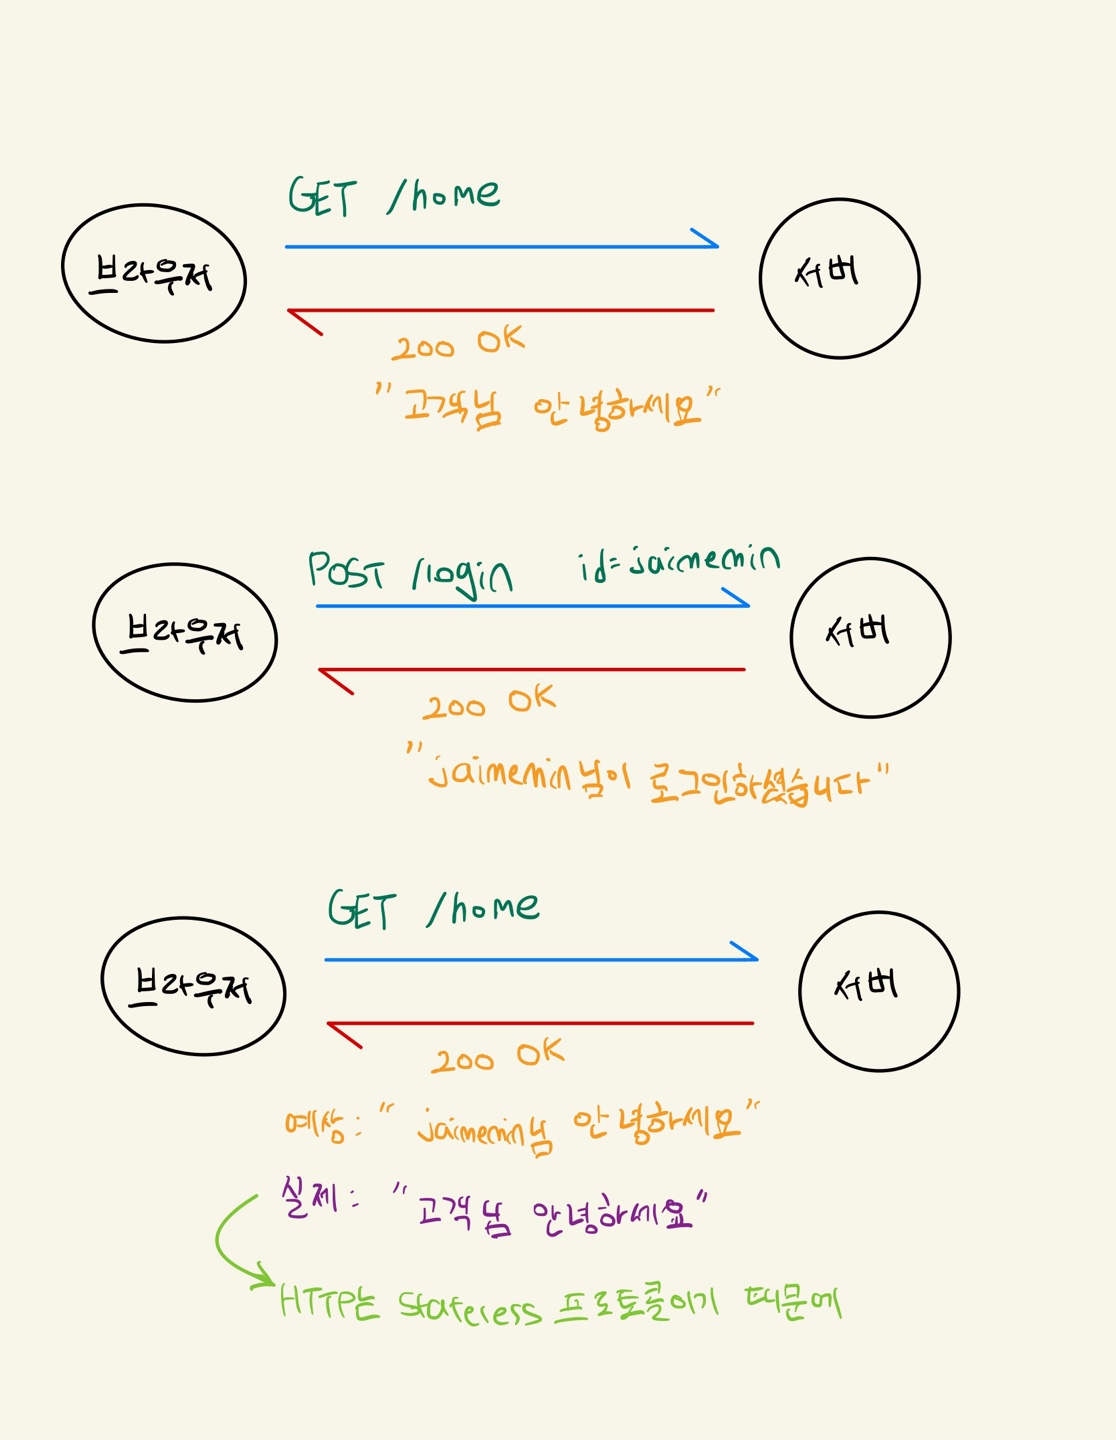 GET /home
브라우저
서버
200 OK
"고객님 안녕하세요"
POST /login id=jaimemin
브라우저
서버
200 OK
"jaimemin님이 로그인하셨습니다"
GET /home
브라우저
서버
200 OK
예상: "jaimemin님 안녕하세요"
실제: "고객님 안녕하세요"
HTTP는 Stateless 프로토콜이기 때문에